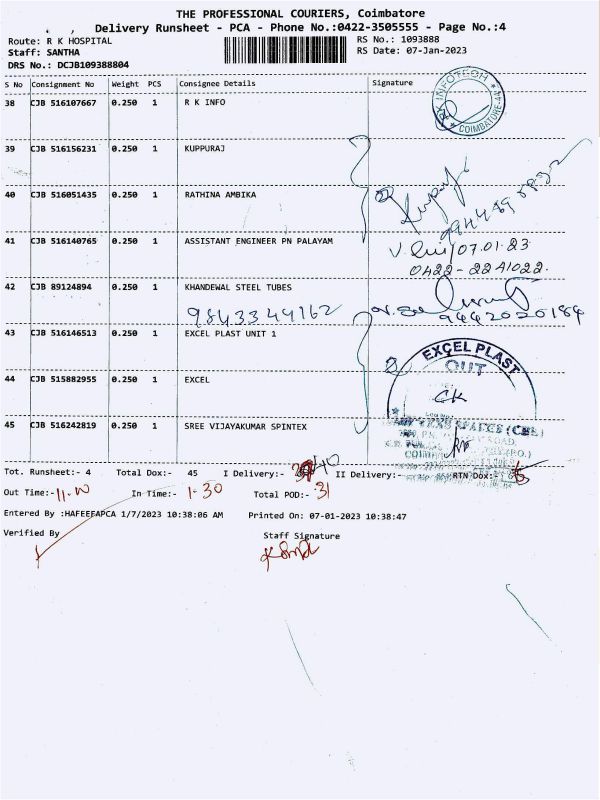 THE PROFESSIONAL COURIERS, Coimbatore
Delivery Runsheet - PCA - Phone No.:0422-3505555 - Page No.:4
Route: R K HOSPITAL
RS No.: 1093888
Staff: SANTHA
RS Date: 07-Jan-2023
DRS No.: DCJB109388804
S No Consignment No Weight PCS Consignee Details Signature
38 CJB 516107667 0.250 1 R K INFO
RK INFOTECH COIMBATORE
39 CJB 516156231 0.250 1 KUPPURAJ
40 CJB 516051435 0.250 1 RATHINA AMBIKA
41 CJB 516140765 0.250 1 ASSISTANT ENGINEER PN PALAYAM
07.01.23
0422-2241022
42 CJB 89124894 0.250 1 KHANDEWAL STEEL TUBES
9843344162
9442020184
43 CJB 516146513 0.250 1 EXCEL PLAST UNIT 1
EXCEL PLAST
OUT
44 CJB 515882955 0.250 1 EXCEL
CK
45 CJB 516242819 0.250 1 SREE VIJAYAKUMAR SPINTEX
Tot. Runsheet:- 4 Total Dox:- 45 I Delivery:- 40 II Delivery:- RTN Dox:- 5
Out Time:- 11.00 In Time:- 1-30 Total POD:- 31
Entered By :HAFEEFAPCA 1/7/2023 10:38:06 AM Printed On: 07-01-2023 10:38:47
Verified By Staff Signature